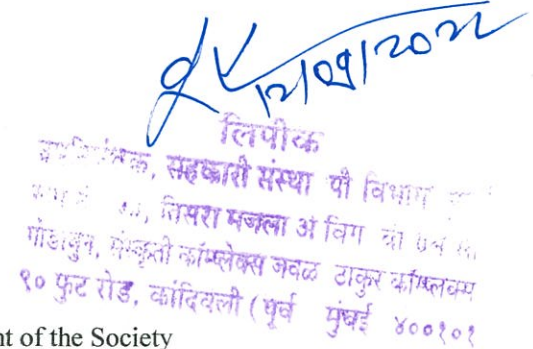 12/09/2022
लिपीक
सहकारी संस्था पी विभाग
तिसरा मजला अ विंग
संस्कृती कॉम्प्लेक्स जवळ ठाकुर कॉम्प्लेक्स
९० फुट रोड, कांदिवली (पूर्व मुंबई ४००१०१
nt of the Society